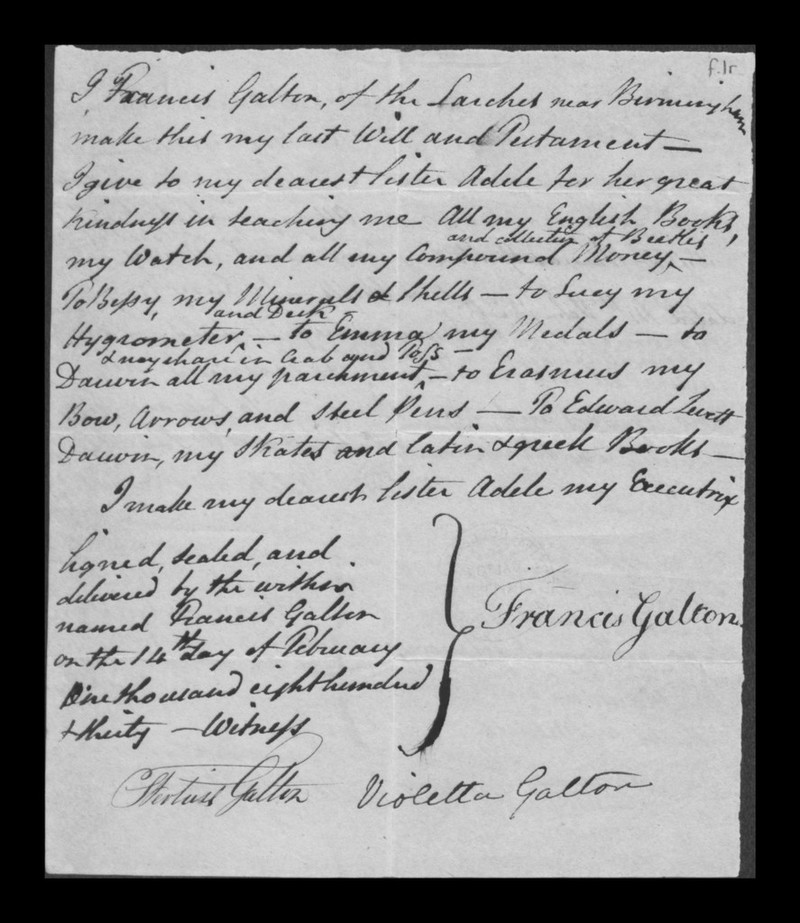 f.1r
I Francis Galton, of the Larches near Birmingham
make this my last Will and Testament —
I give to my dearest Sister Adele for her great
kindness in teaching me All my English Books,
and collection of Beetles
my Watch, and all my Compound Money, —
To Bessy, my Minerals & Shells — to Lucy my
and Desk
Hygrometer — to Emma my Medals — to
& my share in Crab and
Darwin all my parchment — to Erasmus my
Bow, Arrows, and Steel Pens — To Edward Levett
Darwin, my Skates and latin & greek Books —
I make my dearest Sister Adele my Executrix
Signed, sealed, and
delivered by the within
named Francis Galton
on the 14th day of February
One thousand eight hundred
& thirty — Witness
Francis Galton.
Tertius Galton Violetta Galton